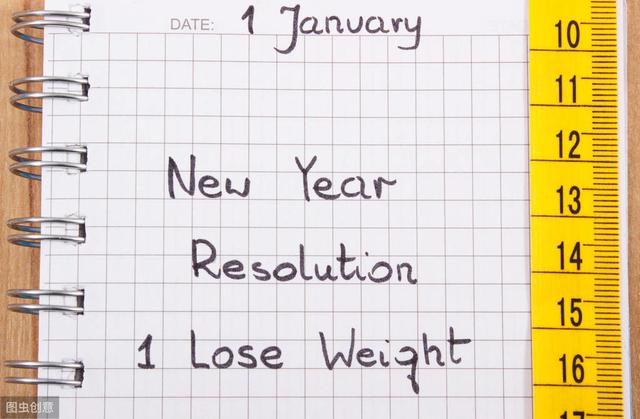 DATE: 1 January
New Year
Resolution
1 Lose Weight
10
11
12
13
14
15
16
17
图虫创意